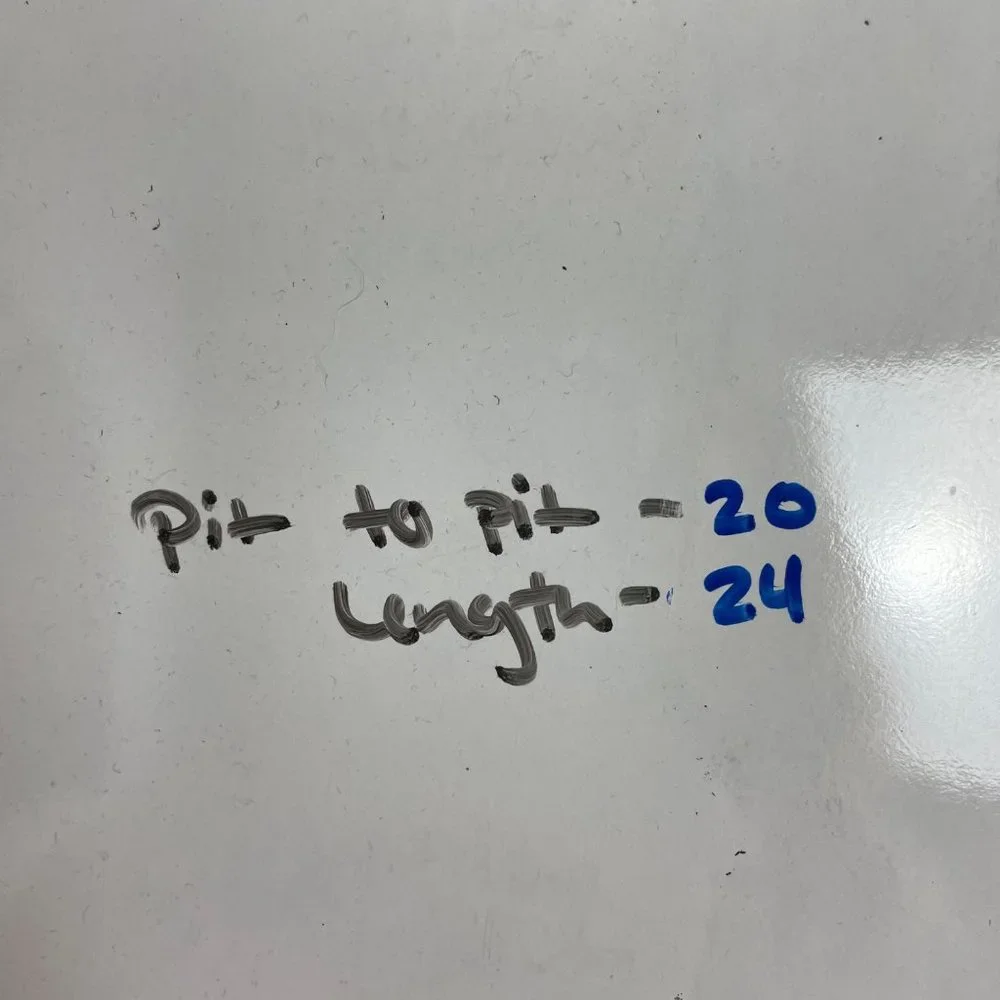 Pit to pit - 20
Length - 24